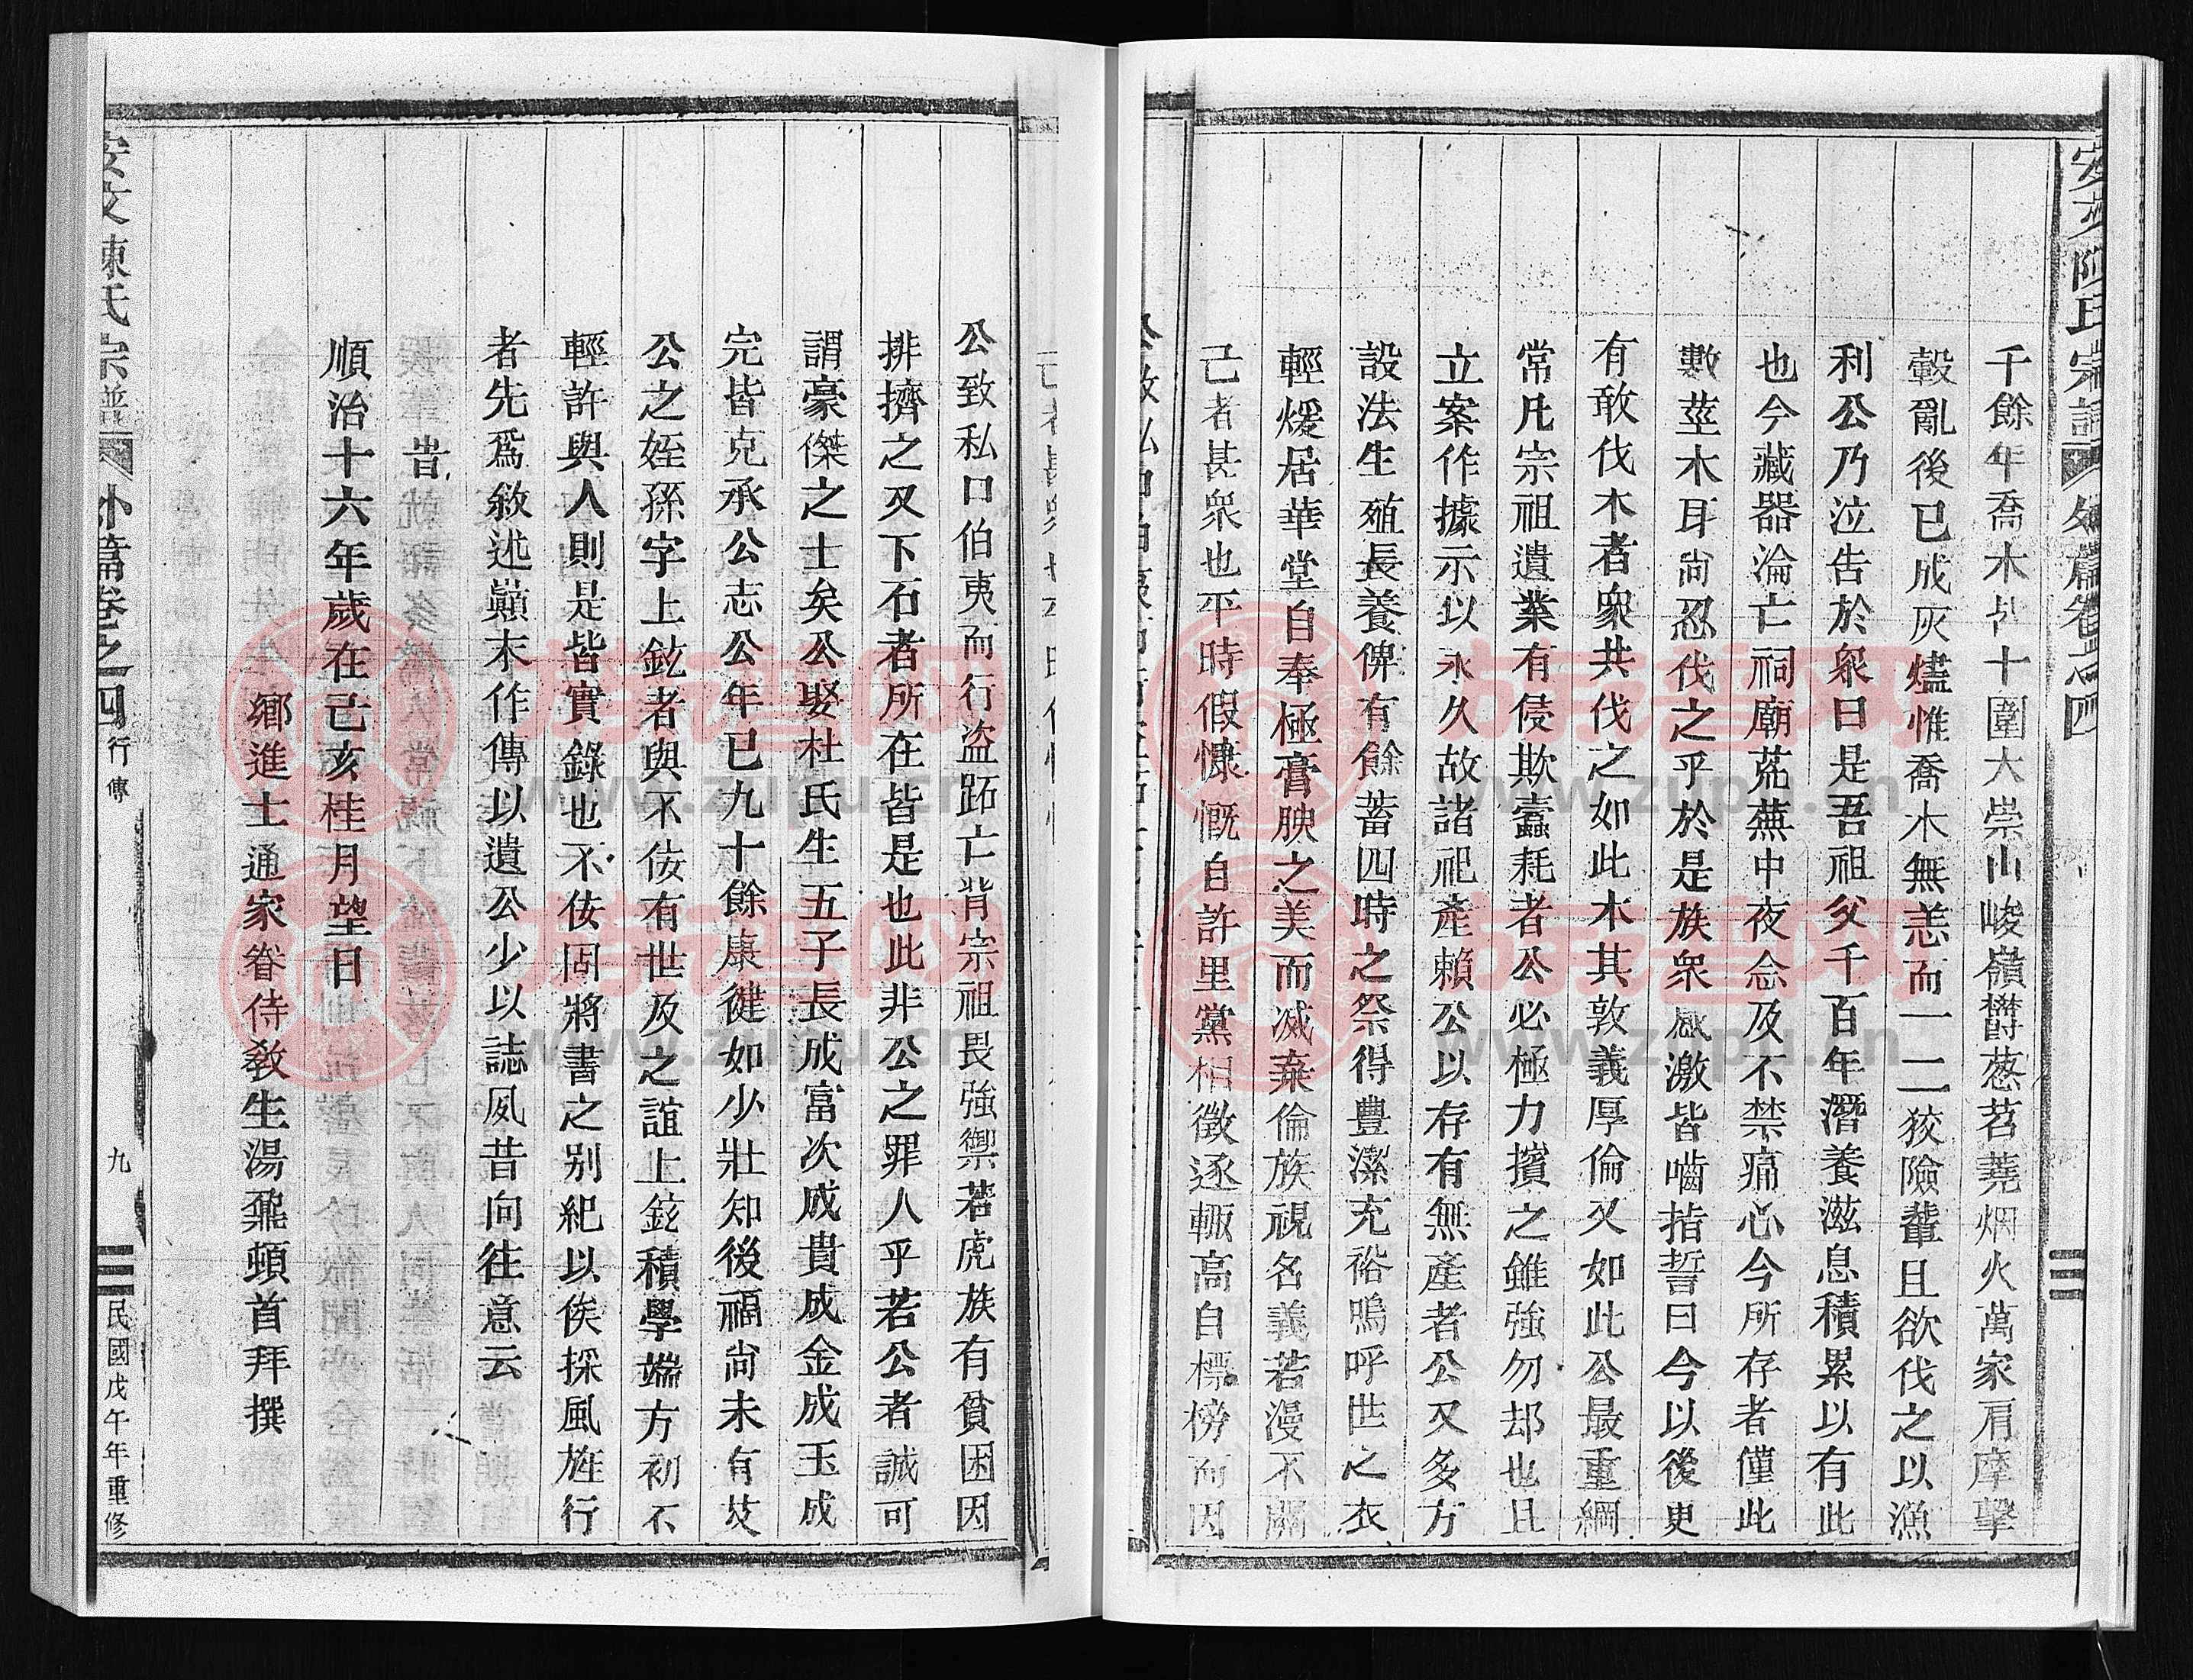 安文陳氏宗譜 外篇卷之四
千餘年喬木占十圍大崇山峻嶺欝葱苕蕘烟火萬家肩摩擊
轂亂後已成灰燼惟喬木無恙而一二狡險輩且欲伐之以漁
利公乃泣告於衆曰是吾祖父千百年潛養滋息積累以有此
也今藏器淪亡祠廟荒蕪中夜念及不禁痛心今所存者僅此
數莖木耳尙忍伐之乎於是族衆感激皆嚙指誓曰今以後更
有敢伐木者衆共伐之如此木其敦義厚倫又如此公最重綱
常凡宗祖遺業有侵欺蠹耗者公必極力擯之雖強勿却也且
立案作據示以永久故諸祀產賴公以存有無產者公又多方
設法生殖長養俾有餘蓄四時之祭得豊潔充裕嗚呼世之衣
輕煖居華堂自奉極膏腴之美而滅棄倫族視名義若漫不關
己者甚衆也平時假慷慨自許里黨相徵逐輙高自標榜而因
公致私口伯夷而行盜跖亡背宗祖畏強禦若虎族有貧困因
排擠之又下石者所在皆是也此非公之罪人乎若公者誠可
謂豪傑之士矣公娶杜氏生五子長成富次成貴成金成玉成
完皆克承公志公年已九十餘康健如少壯知後福尙未有艾
公之姪孫字上鉉者與不佞有世及之誼上鉉積學端方初不
輕許與人則是皆實錄也不佞固將書之别紀以俟採風旌行
者先爲敘述巔末作傳以遺公少以誌夙昔向往意云
旹
順治十六年歲在己亥桂月望日
鄉進士通家眷侍敎生湯鼐頓首拜撰
安文陳氏宗譜 外篇卷之四 行傳 九 民國戊午年重修
族譜网
www.zupu.cn
族譜网
www.zupu.cn
族譜网
www.zupu.cn
族譜网
www.zupu.cn